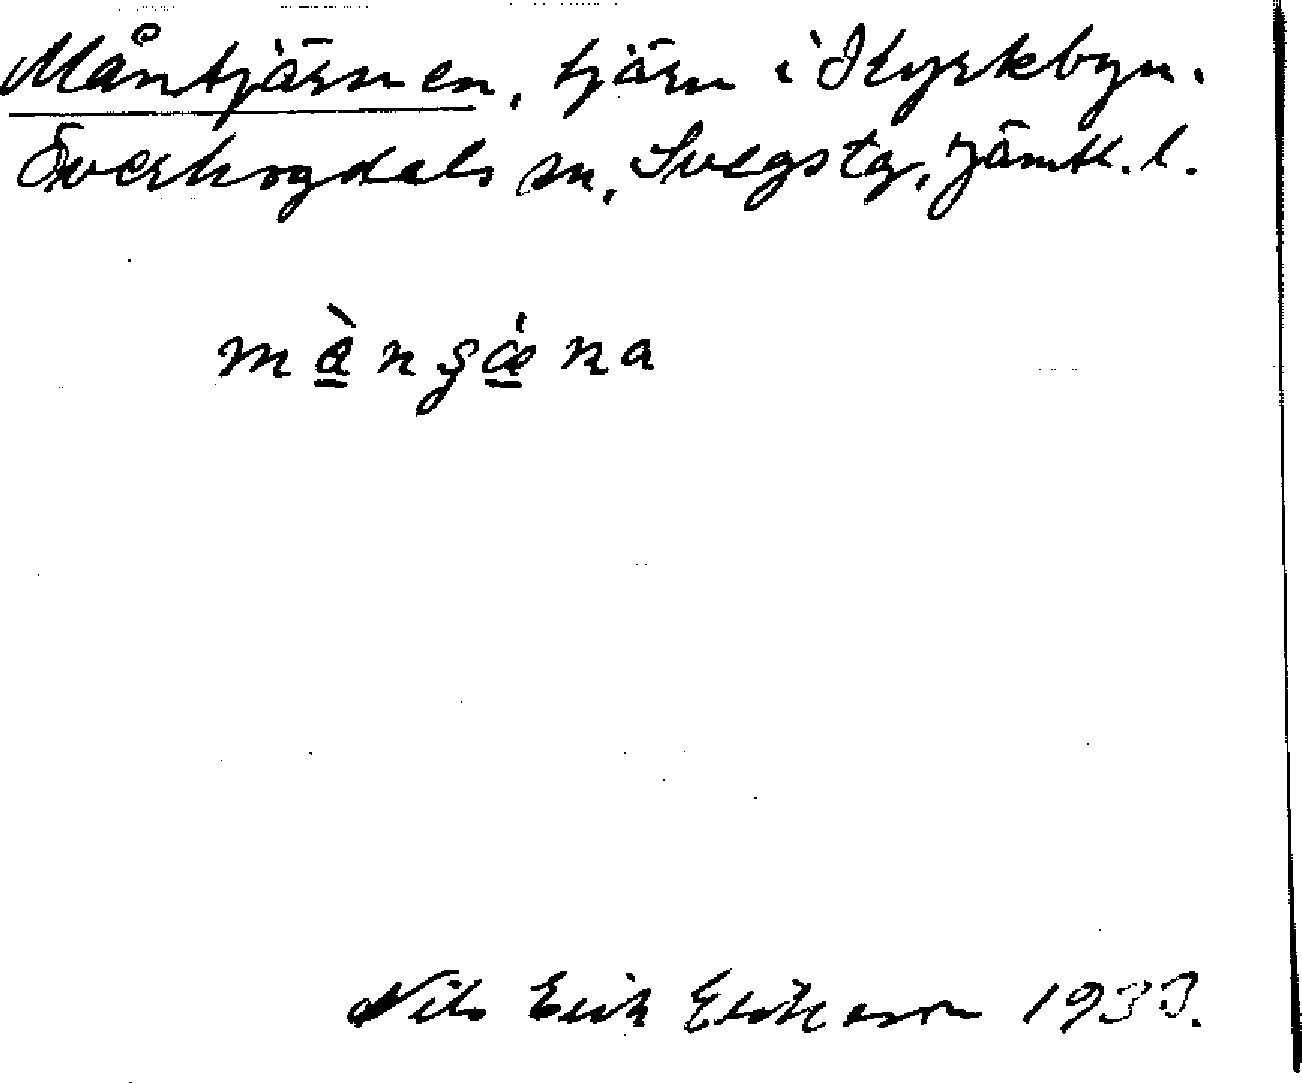 Måntjärnen, tjärn i Kyrkbyn.
Överhogdals sn, Svegs tg, Jämtl. l.
Nils Erik Eriksson 1933.